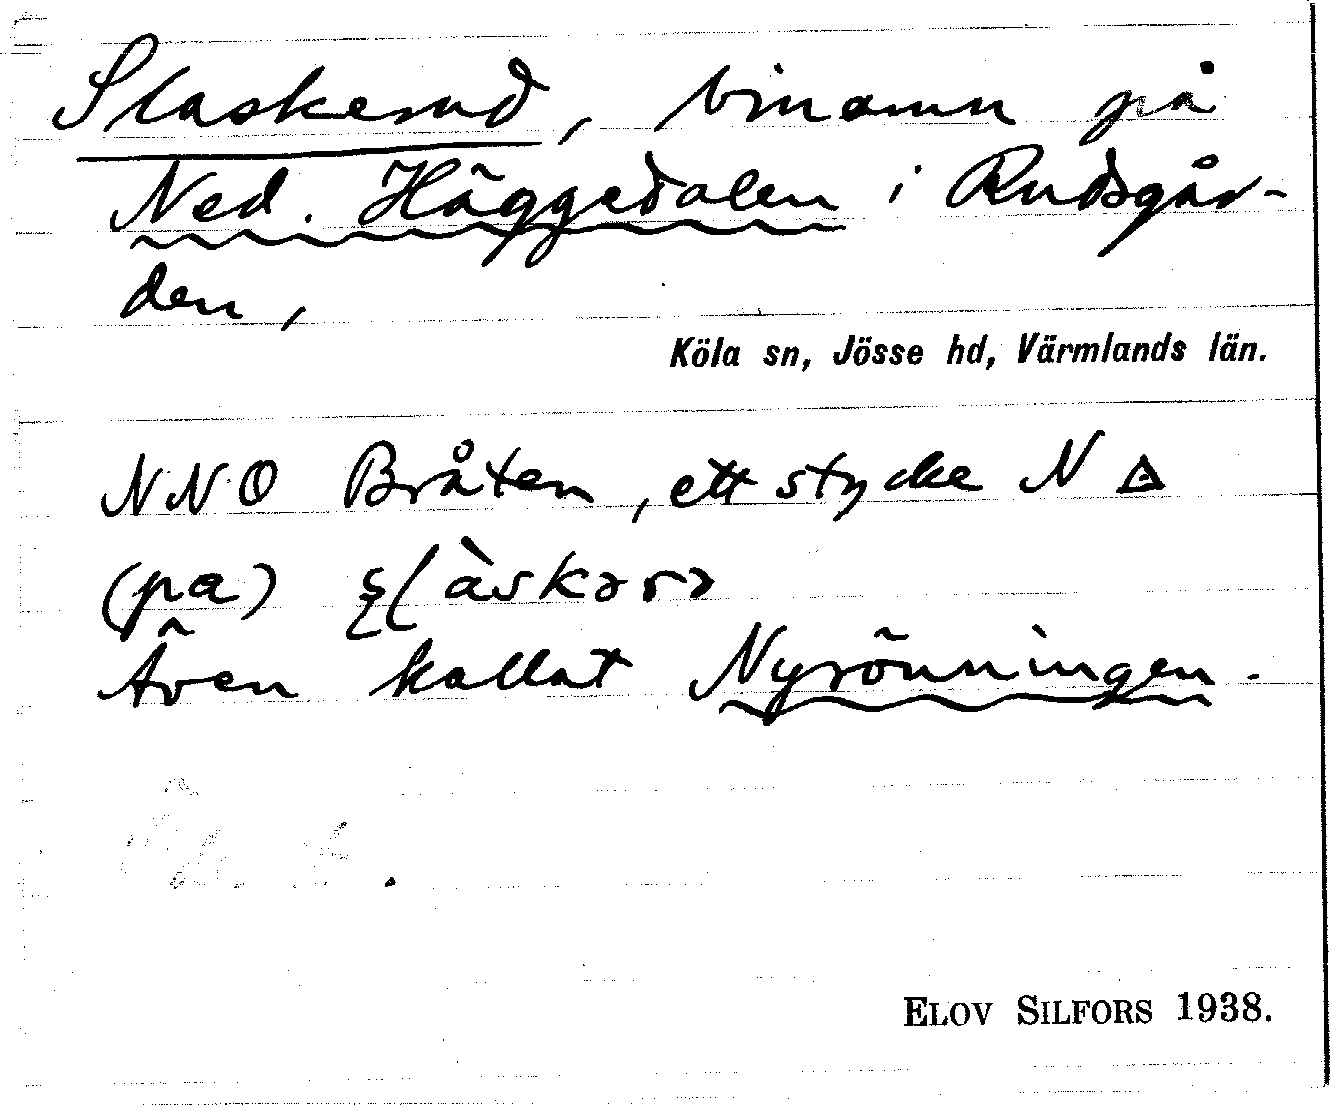 Slaskerud, binamn på
Ned. Häggedalen i Rudsgår-
den,
Köla sn, Jösse hd, Värmlands län.
NNO Bråten, ett stycke N ◬
(pa) ʂlàskərə
Även kallat Nyrönningen.
ELOV SILFORS 1938.